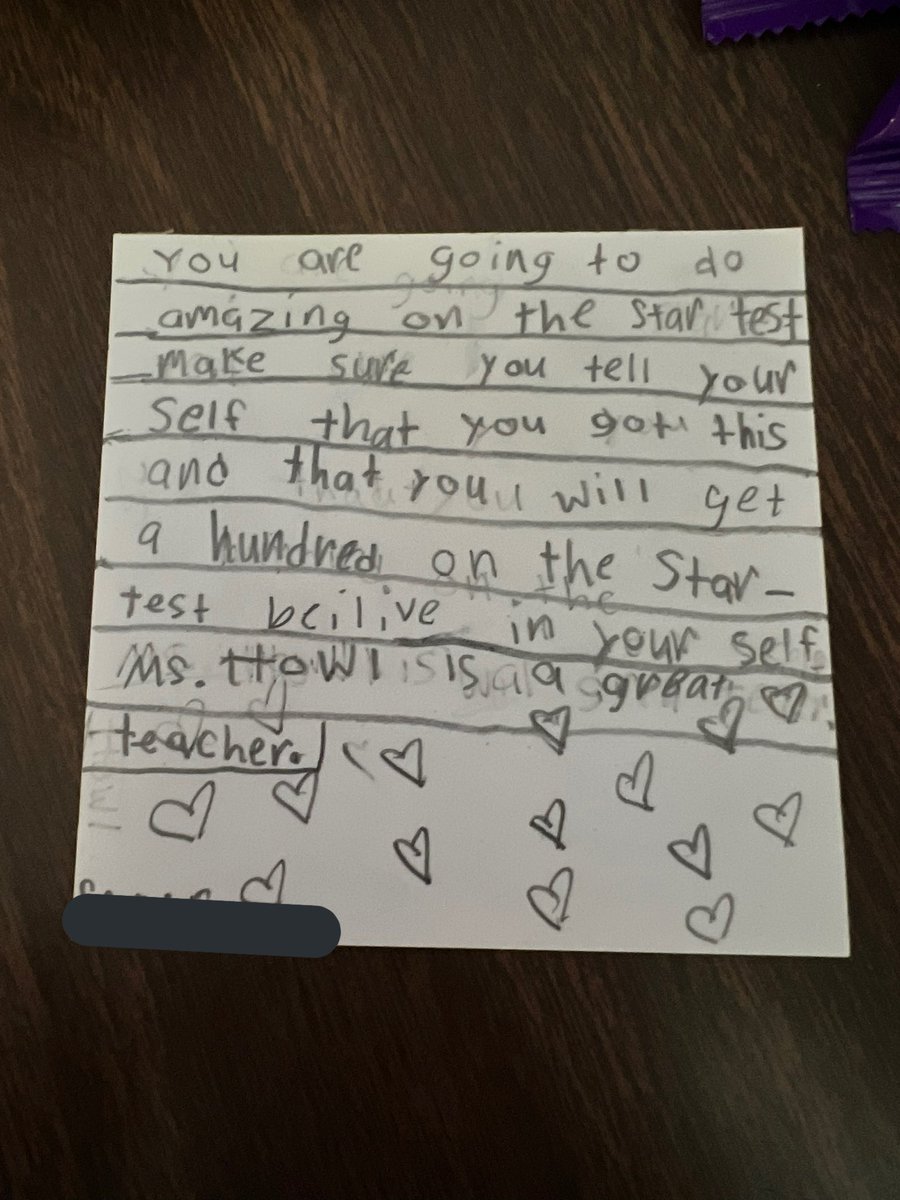 You are going to do
amazing on the star test
make sure you tell your
self that you got this
and that you will get
a hundred on the Star-
test bcilive in your self
Ms. is a great
teacher.